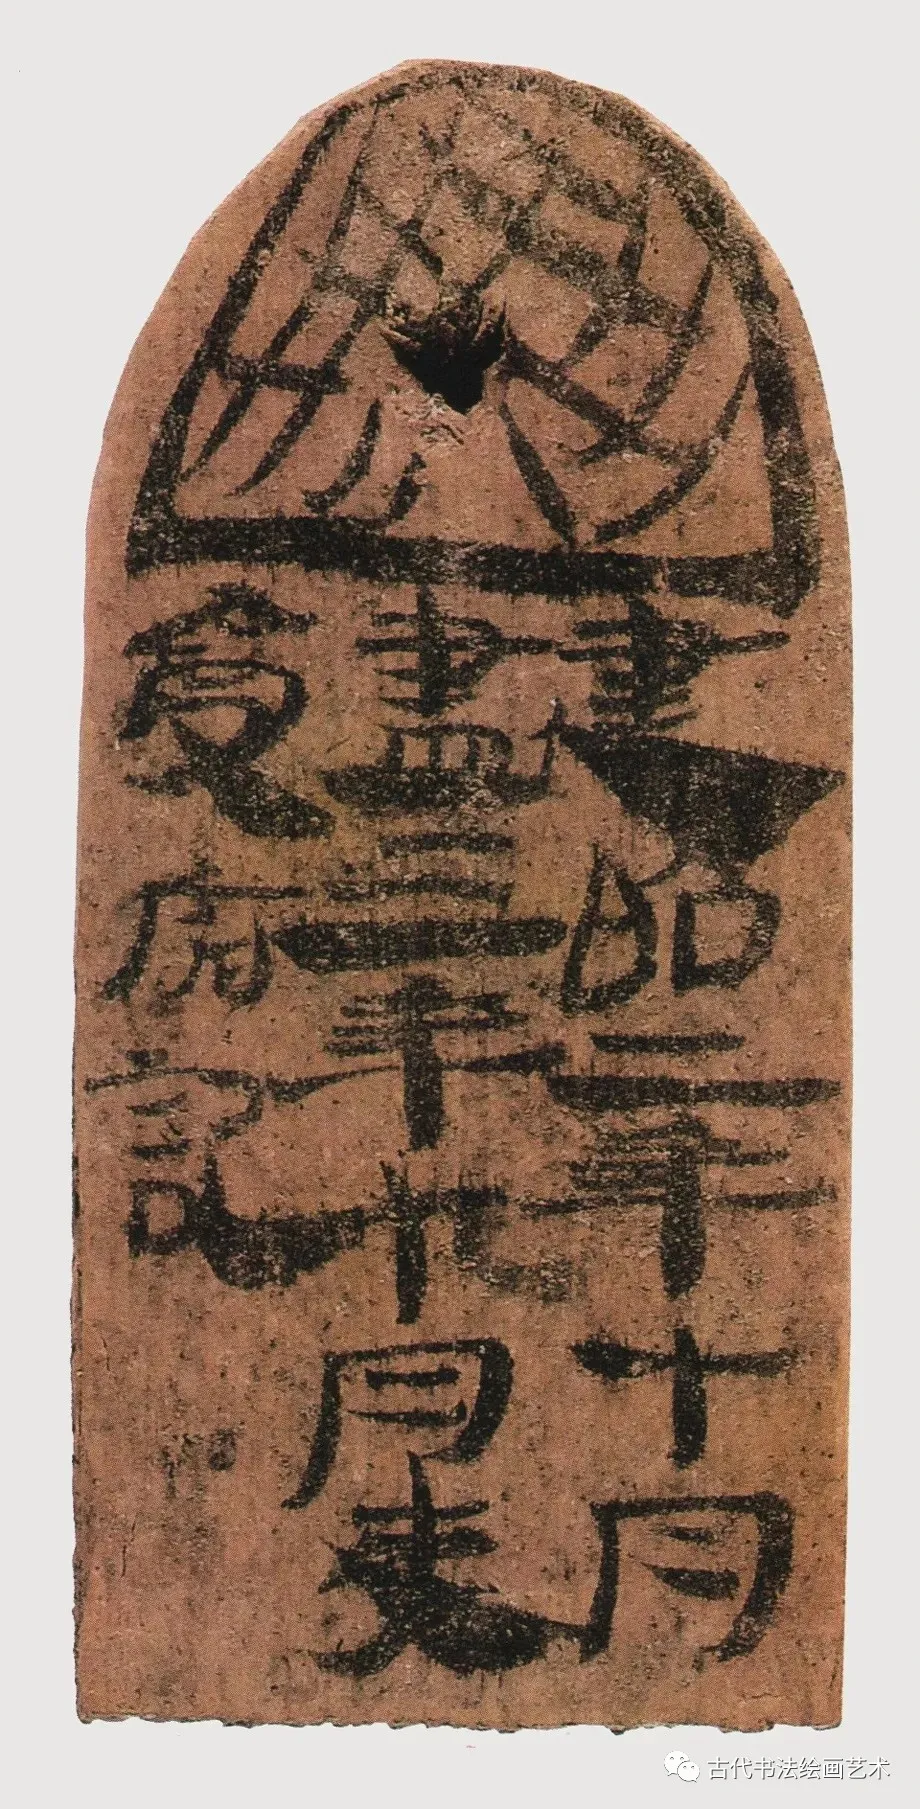 建昭二年十月
盡三年九月吏
受府記
古代书法绘画艺术